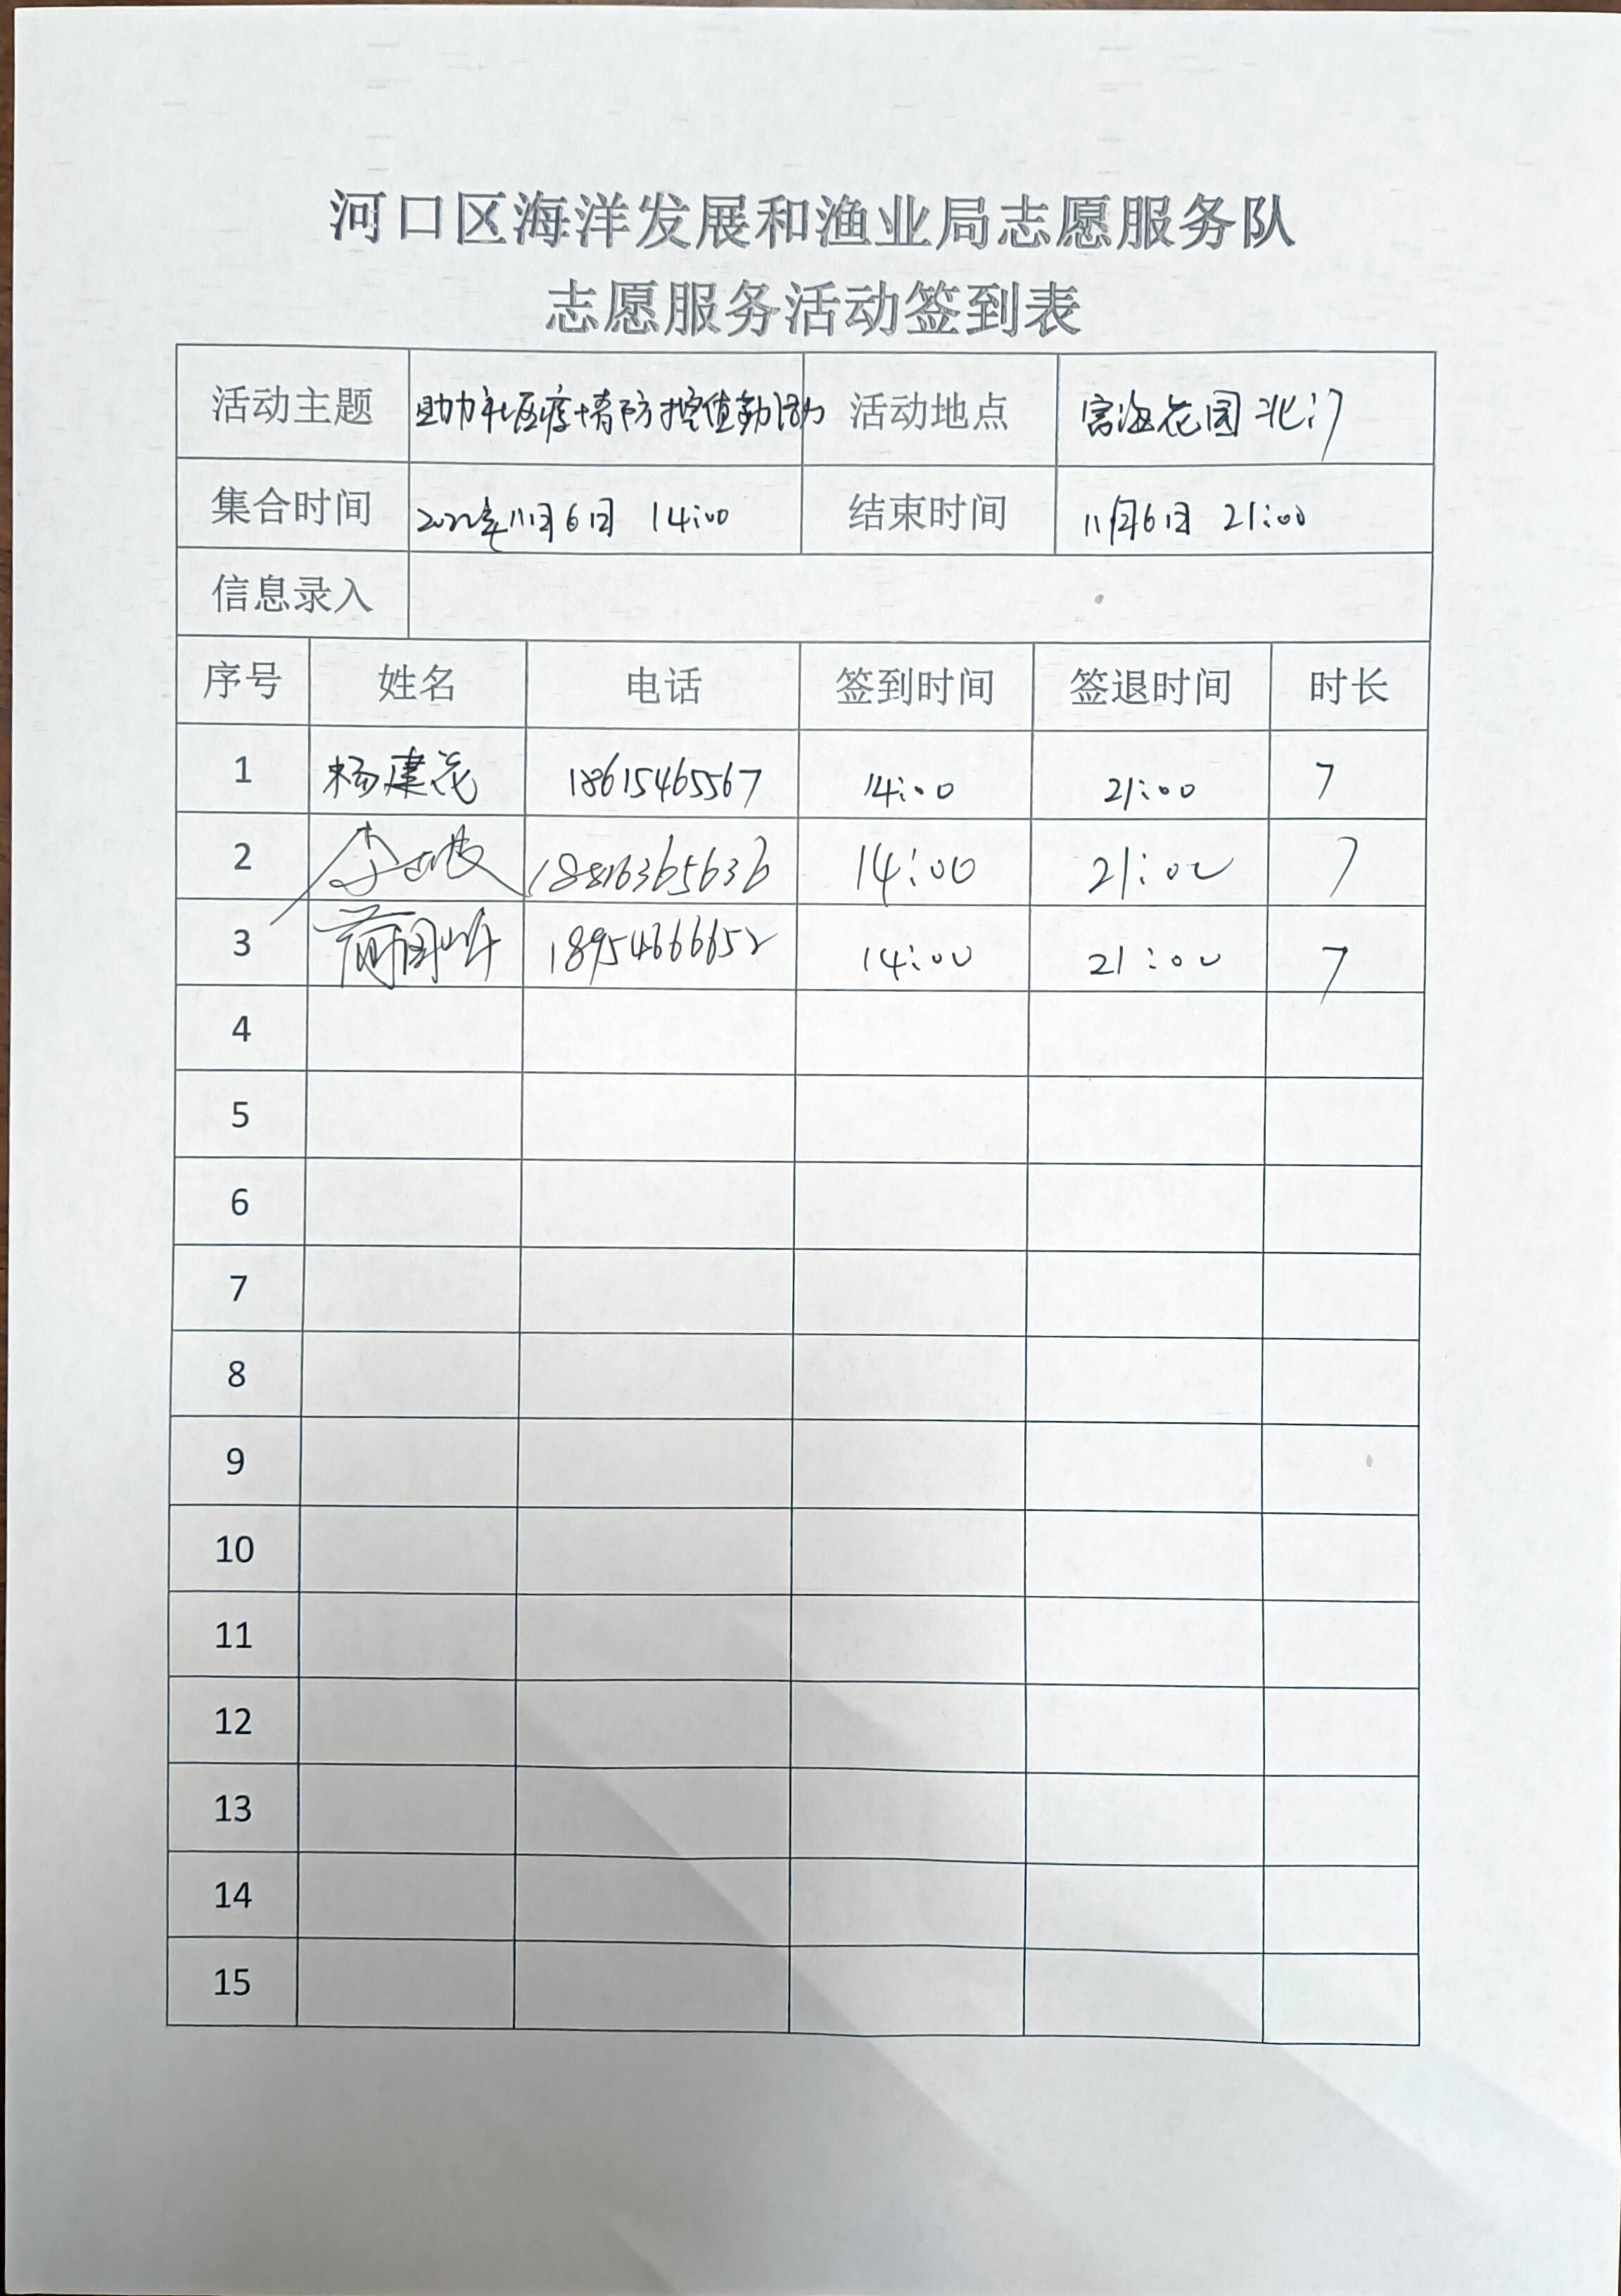 河口区海洋发展和渔业局志愿服务队
志愿服务活动签到表
活动主题 助力社区疫情防控值勤活动 活动地点 富海花园北门
集合时间 2022年11月6日 14:00 结束时间 11月6日 21:00
信息录入
序号 姓名 电话 签到时间 签退时间 时长
1 杨建花 18615465567 14:00 21:00 7
2 14:00 21:00 7
3 18954666652 14:00 21:00 7
4
5
6
7
8
9
10
11
12
13
14
15